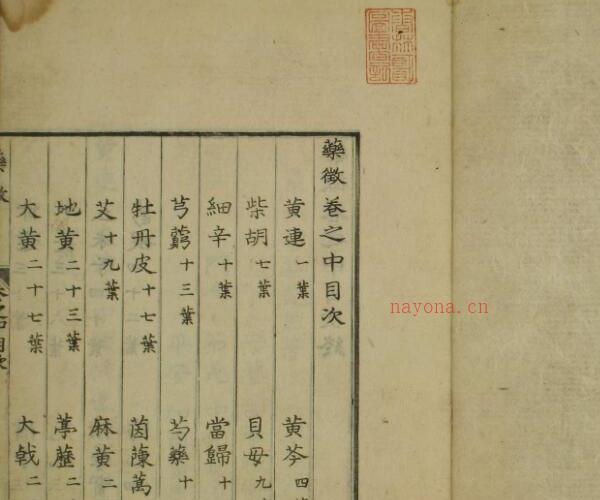 藥徵卷之中目次
黃連 一葉 黃芩 四
柴胡 七葉 貝母 九
細辛 十葉 當歸 十
芎藭 十三葉 芍藥 十
牡丹皮 十七葉 茵蔯蒿
艾 十九葉 麻黃 二
地黃 二十三葉 葶藶 二
大黃 二十七葉 大戟 二
藥徵 卷之中目次
nayona.cn